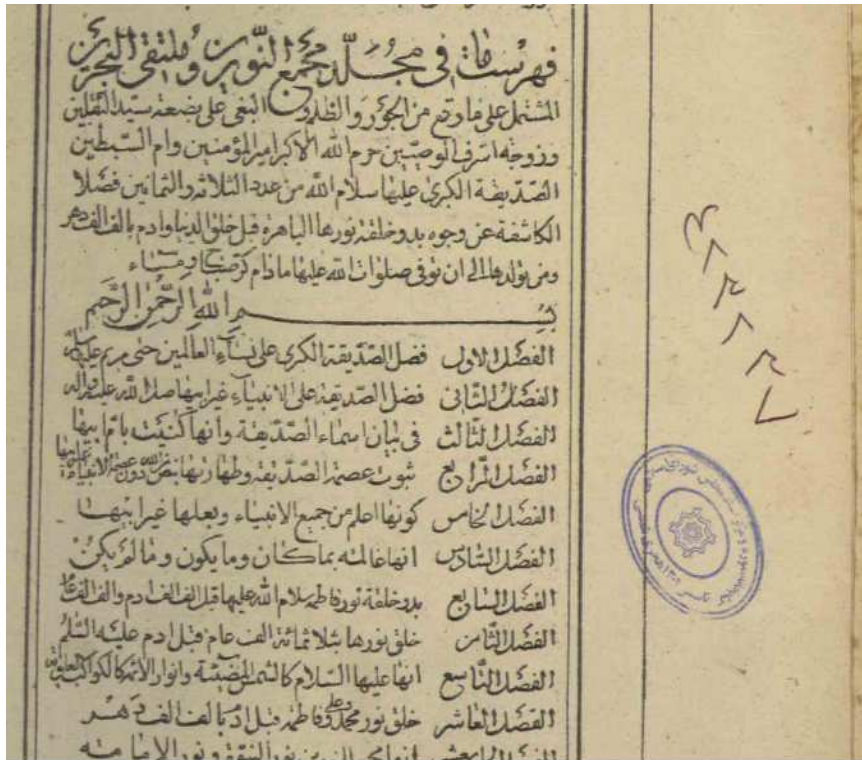 فهرست ما في مجلد مجمع النورين وملتقى البحرين
المشتمل على ما وقع من الجور والظلم و البغى على بضعة سيد الثقلين
وزوجة اشرف الوصيين حرم الله الاكبر امير المؤمنين وام السبطين
الصديقة الكبرى عليها سلام الله من عدد الثلاثة والثمانين فصلا
الكاشفة عن وجوه بدو خلقة نورها الباهرة قبل خلق الدنيا وادم بالف الف دهر
ومن تولدها الى ان توفى صلوات الله عليها مادام كر صباح ومساء
بسم الله الرحمن الرحيم
الفصل الاول فضل الصديقة الكبرى على نساء العالمين حتى مريم عليها سلام
الفصل الثانى فضل الصديقة على الانبياء غير ابيها صلى الله عليه واله
الفصل الثالث فى بيان اسماء الصديقة وانها كنيت بام ابيها
الفصل الرابع ثبوت عصمة الصديقة وطهارتها بنص الله دون عصمة الانبياء
الفصل الخامس كونها اعلم من جميع الانبياء وبعلها غير ابيها
الفصل السادس انها عالمة بما كان وما يكون وما لم يكن
الفصل السابع بدو خلقة نور فاطمه سلام الله عليها قبل الف الف ادم والف الف عالم
الفصل الثامن خلق نورها بثلاثمائة الف عام قبل ادم عليه السلم
الفصل التاسع انها عليها السلام كالشمس المضيئة وانوار الائمه كالكواكب
الفصل العاشر خلق نور محمد وعلى وفاطمه قبل ادم بالف الف دهر
انها مجمع النورين نور النبوة ونور الامامة
۳۲۳۲۳۷